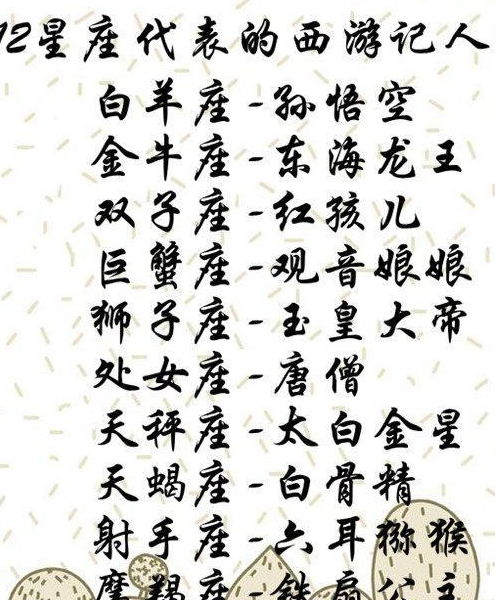 12星座代表的西游记人
白羊座-孙悟空
金牛座-东海龙王
双子座-红孩儿
巨蟹座-观音娘娘
狮子座-玉皇大帝
处女座-唐僧
天秤座-太白金星
天蝎座-白骨精
射手座-六耳猕猴
摩羯座-铁扇公主